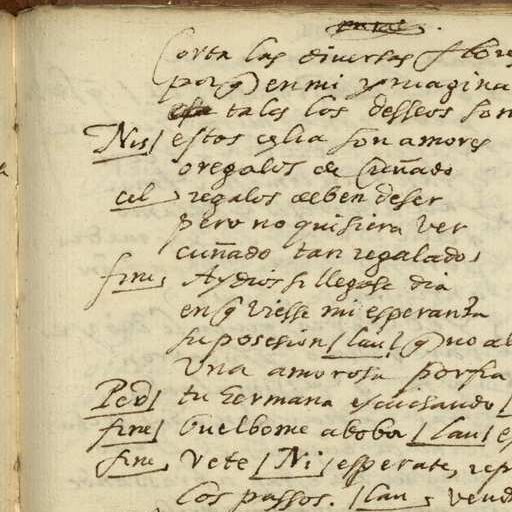 Corta las diuersas flores
porq̃ en mi ymagina
tales los desseos son
Nis/ estos çelia son amores
o regalos de cuñado
cel regalos deben de ser
pero no quisiera ver
cuñado tan regalado
fine Ay dios si llegase dia
en q̃ viesse mi esperanza
su posesion /Lau/ q̃ no al
Una amorosa porfia
Ped/ tu hermana escuchando /
fine/ buelbome a boba /Lau/ es
fine vete /Ni/ esperate, rep
los passos. /Lau, vend